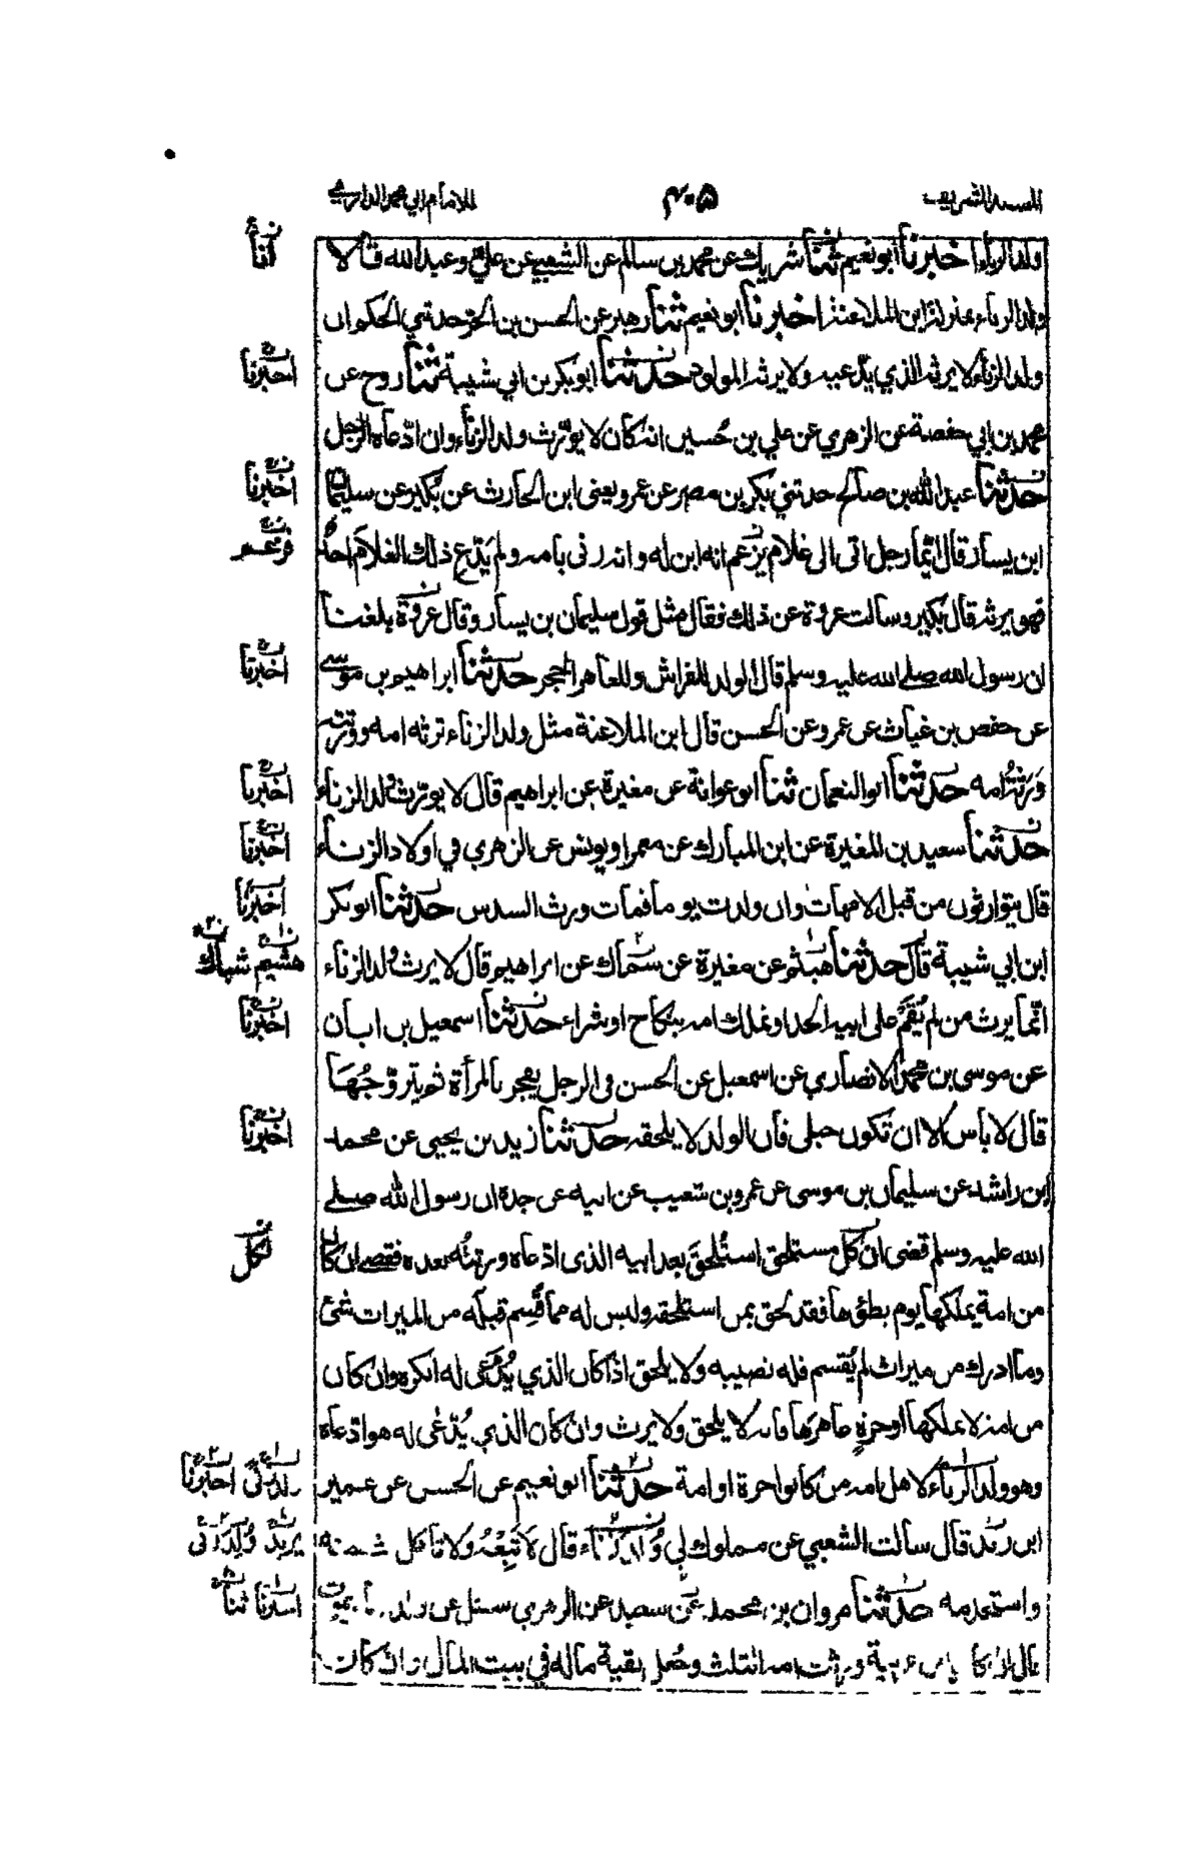 المسند الشريف
٤٠٥
للامام ابي محمد الدارمي
ولد الزناء اخبرنا ابو نعيم ثنا شريك عن محمد بن سالم عن الشعبي عن علي وعبد الله قالا
ولد الزناء بمنزلة ابن الملاعنة اخبرنا ابو نعيم ثنا زهير عن الحسن بن الحر حدثني الحكم ان
ولد الزناء لا يرثه الذي يدعيه ولا يرثه المولود حدثنا ابو بكر بن ابي شيبة ثنا روح عن
محمد بن ابي حفصة عن الزهري عن علي بن حُسين انه كان لا يورّث ولد الزناء وان ادّعاه الرجل
حدثنا عبد الله بن صالح حدثني بكر بن مضر عن عمرو يعنى ابن الحارث عن بُكير عن سليمان
ابن يسار قال ايّما رجل اتى الى غلام يزعم انه ابن له وانه زنى بامه ولم يَدّعِ ذلك الغلامَ احدٌ
فهو يرثه قال بكير وسالت عروة عن ذلك فقال مثل قول سليمان بن يسار وقال عروة بلغنا
ان رسول الله صلى الله عليه وسلم قال الولد للفراش وللعاهر الحجر حدثنا ابراهيم بن موسى
عن حفص بن غياث عن عمرو عن الحسن قال ابن الملاعنة مثل ولد الزناء ترثه امه وورثته
وَرَثَةُ امه حدثنا ابو النعمان ثنا ابو عوانة عن مغيرة عن ابراهيم قال لا يورث ولد الزناء
حدثنا سعيد بن المغيرة عن ابن المبارك عن معمر او يونس عن الزهري في اولاد الزناء
قال يتوارثون من قبل الامهات وان ولدت يوما فمات ورث السدس حدثنا ابو بكر
ابن ابي شيبة قال حدثنا هيثم عن مغيرة عن سماك عن ابراهيم قال لا يرث ولد الزناء
انّما يرث من لم يُقَم على ابيه الحد او تملك امه بنكاح او شراء حدثنا اسمعيل بن ابان
عن موسى بن محمد الانصاري عن اسمعيل عن الحسن فى الرجل يفجر بالمرأة ثم يتزوّجُهَا
قال لا بأس الا ان تكون حبلى فان الولد لا يلحقه حدثنا زيد بن يحيى عن محمد
ابن راشد عن سليمان بن موسى عن عمرو بن شعيب عن ابيه عن جده ان رسول الله صلى
الله عليه وسلم قضى ان كل مستلحق استُلحق بعد ابيه الذى ادّعاه ورثته بعده فقضى ان كان
من امة يملكها يوم يطؤها فقد لحق بمن استلحقه وليس له مما قُسِم قبله من الميراث شئ
وما ادرك من ميراث لم يُقسم فله نصيبه ولا يلحق اذا كان الذي يُدْعَى له انكره وان كان
من امة لا يملكها او حرة عاهرها فانه لا يلحق ولا يرث وان كان الذي يُدّعٰى له هو ادّعاه
وهو ولد الزناء لاهل امه من كانوا حرة او امة حدثنا ابو نعيم عن الحسن عن عمير
ابن يزيد قال سالت الشعبي عن مملوك لي وُلد زناء قال لا تَبِعْهُ ولا تاكل ثمنه
واستخدمه حدثنا مروان بن محمد عن سعيد عن الزهري سئل عن ولد يموت
قال ان كا ورثت امه الثلث وجُعل بقية ماله في بيت المال وان كان
أنبأ
اخبرنا
اخبرنا
فزعم
اخبرنا
اخبرنا
اخبرنا
اخبرنا
هشيم شباك
اخبرنا
اخبرنا
لكل
اخبرنا
يزيد
ثنا